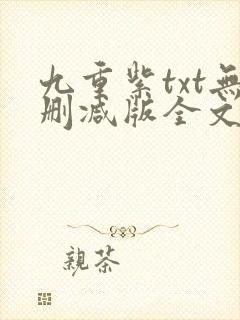 九重紫txt無
刪減版全文
親茶